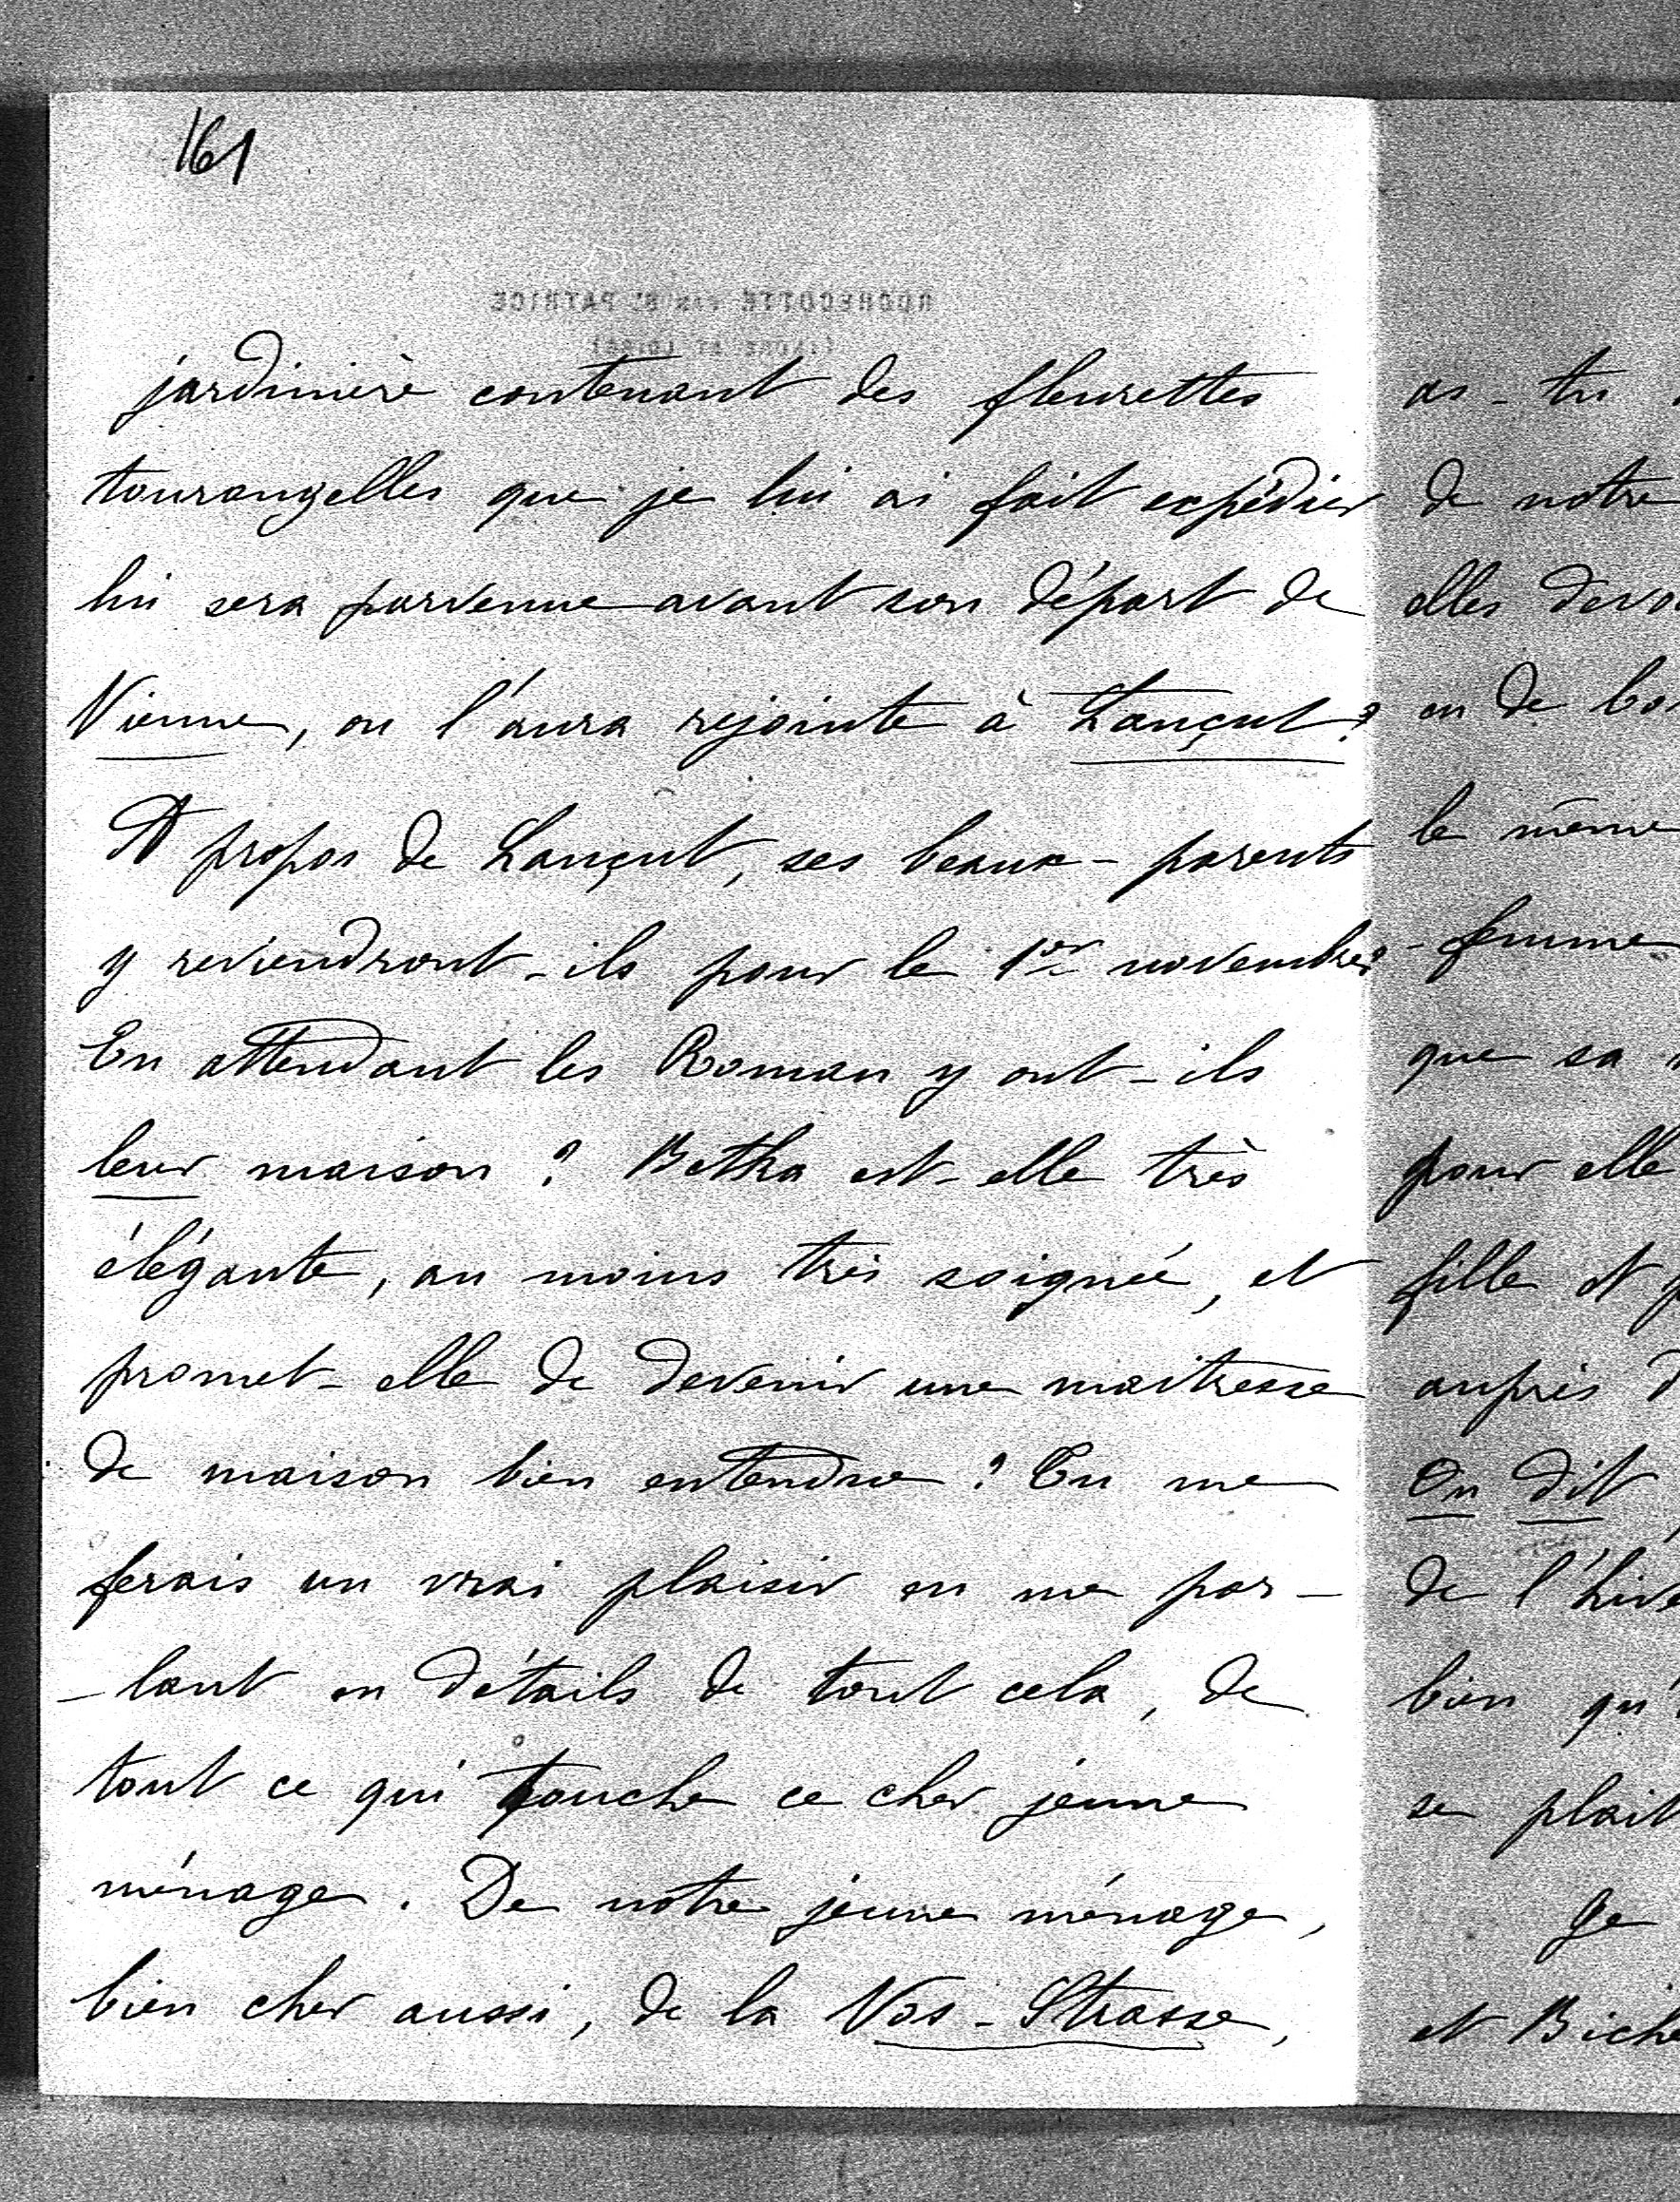 161
ROCHECOTTE PAR St PATRICE
(INDRE ET LOIRE)
jardinière contenant des fleurettes
tourangelles que je lui ai fait expédier
lui sera parvenue avant son départ de
Vienne, ou l'aura rejointe à Lançut?
A propos de Lançut, ses beaux-parents
y reviendront-ils pour le 1er novembre?
En attendant les Roman y ont-ils
leur maison? Betka est-elle très
élégante, au moins très soignée, et
promet-elle de devenir une maitresse
de maison bien entendue? Tu me
ferais un vrai plaisir en me par-
-lant en détails de tout cela, de
tout ce qui touche ce cher jeune
ménage. De notre jeune ménage,
bien cher aussi, de la Vos-Strasse,
as-tu
de notre
elles devo
ou de bo
le même
-femme
que sa
pour elle
fille et
auprès d
On dit
de l'hive
bien qu'
se plait
Je
et Biche